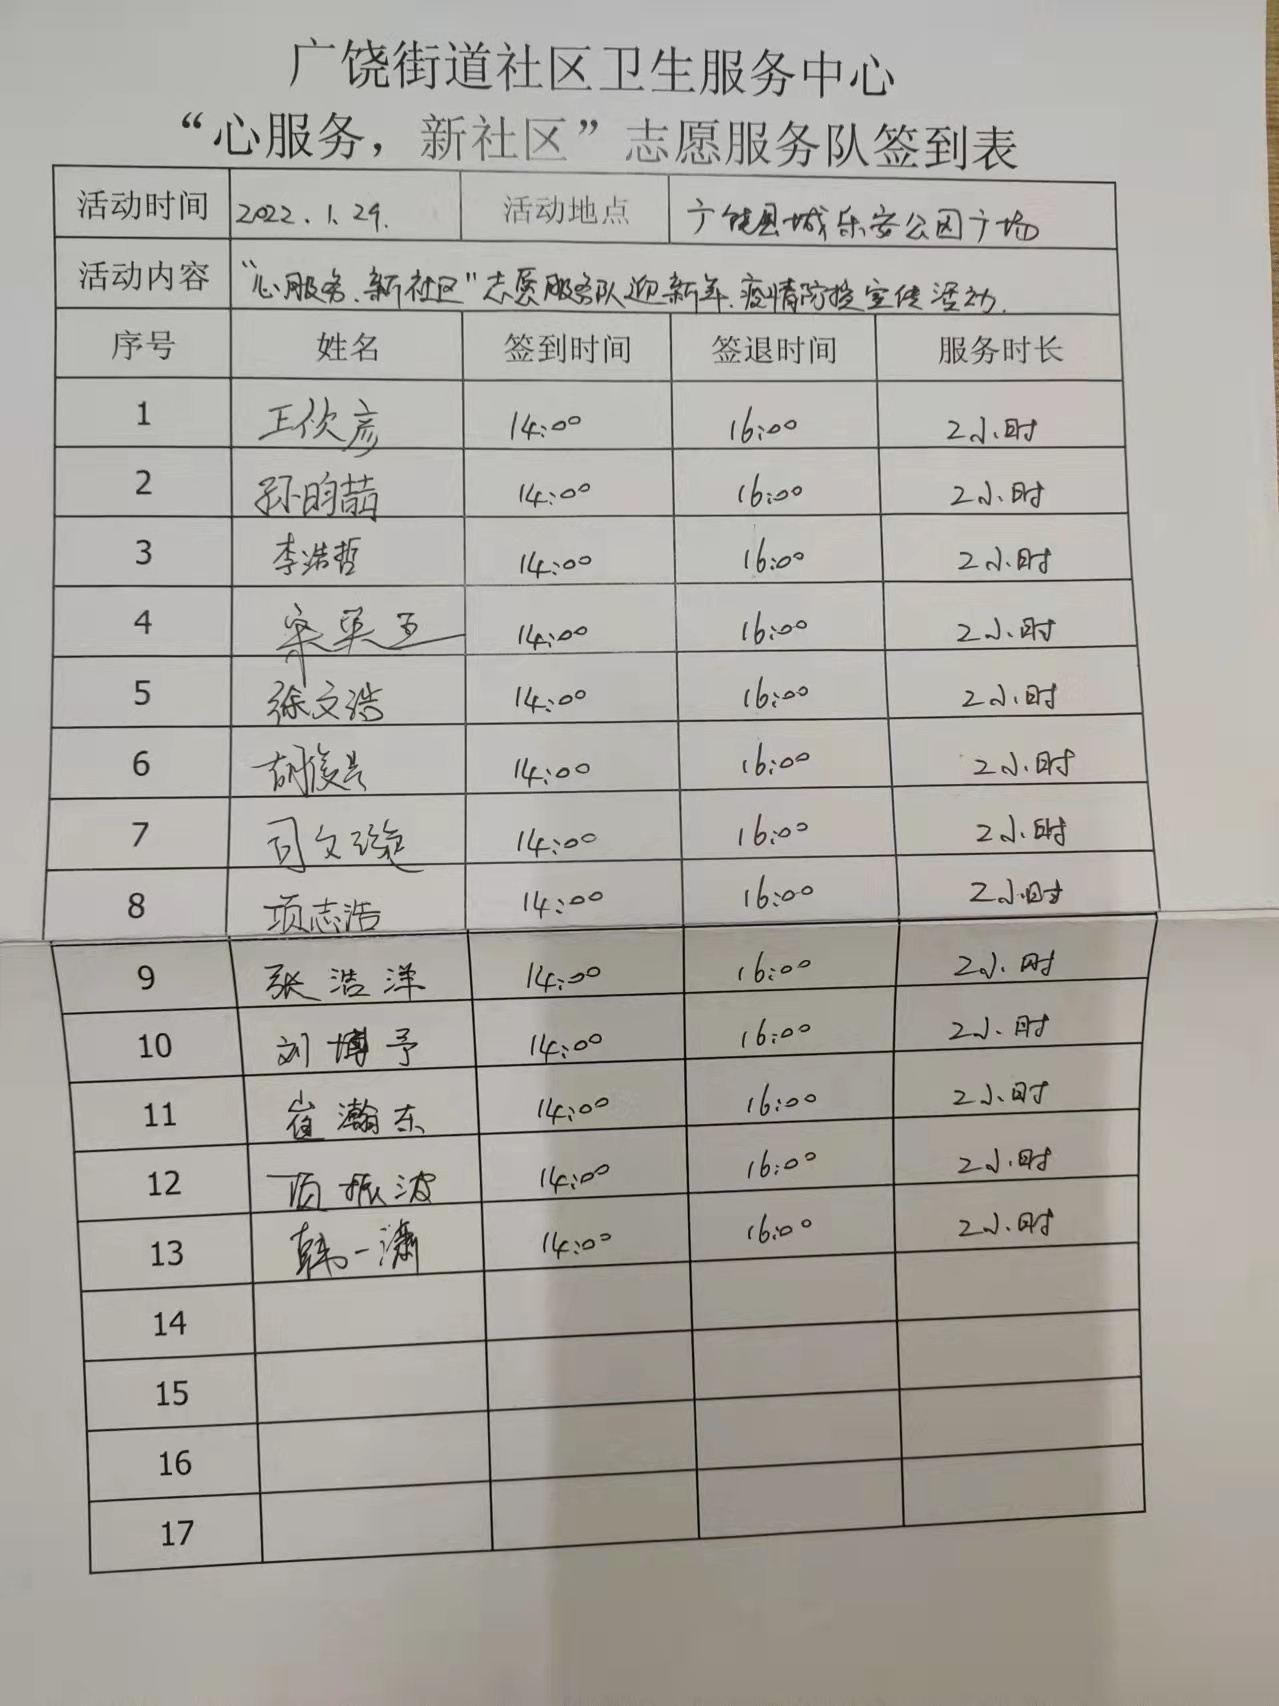 广饶街道社区卫生服务中心
“心服务，新社区”志愿服务队签到表
活动时间 2022.1.29. 活动地点 广饶县城乐安公园广场
活动内容 “心服务、新社区”志愿服务队迎新年、疫情防控宣传活动.
序号 姓名 签到时间 签退时间 服务时长
1 王欣彦 14:00 16:00 2小时
2 孙昀喆 14:00 16:00 2小时
3 李浩哲 14:00 16:00 2小时
4 14:00 16:00 2小时
5 徐文浩 14:00 16:00 2小时
6 胡俊 14:00 16:00 2小时
7 司文 14:00 16:00 2小时
8 项志浩 14:00 16:00 2小时
9 张浩洋 14:00 16:00 2小时
10 刘博予 14:00 16:00 2小时
11 崔瀚东 14:00 16:00 2小时
12 项振波 14:00 16:00 2小时
13 韩一潇 14:00 16:00 2小时
14
15
16
17